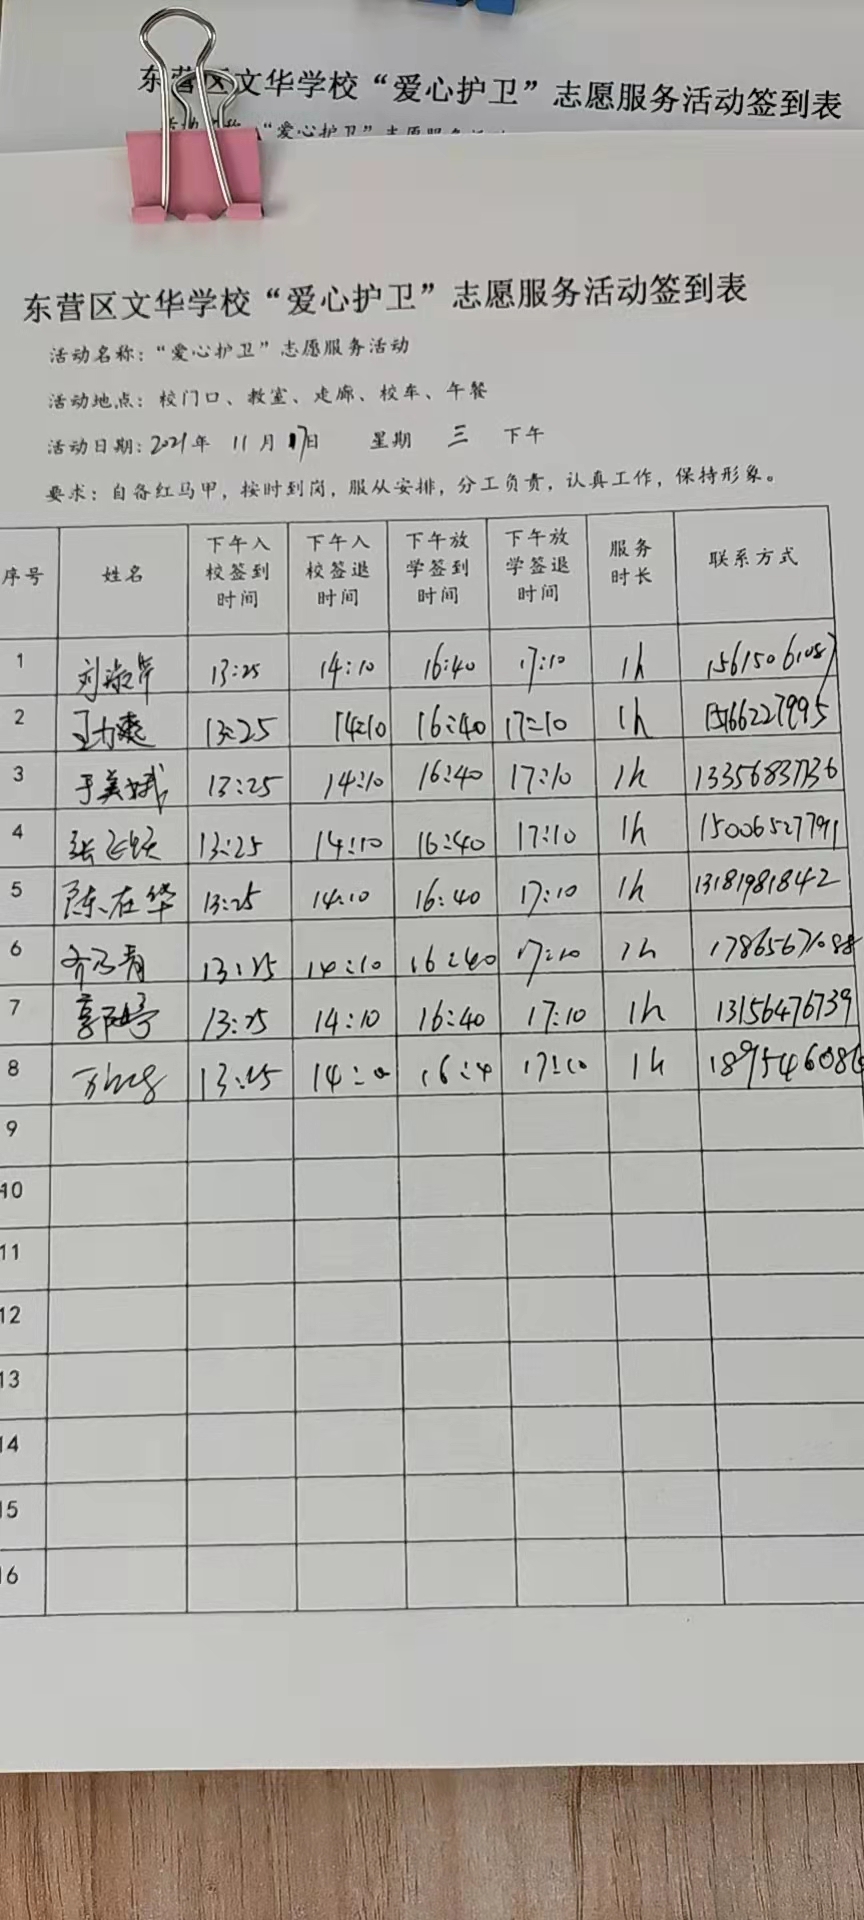 东营区文华学校“爱心护卫”志愿服务活动签到表
“爱心护卫”志愿服务活动
东营区文华学校“爱心护卫”志愿服务活动签到表
活动名称：“爱心护卫”志愿服务活动
活动地点：校门口、教室、走廊、校车、午餐
活动日期：2021年 11月17日 星期 三 下午
要求：自备红马甲，按时到岗，服从安排，分工负责，认真工作，保持形象。
序号 姓名 下午入校签到时间 下午入校签退时间 下午放学签到时间 下午放学签退时间 服务时长 联系方式
1 13:25 14:10 16:40 17:10 1h 15615061087
2 13:25 14:10 16:40 17:10 1h 15166227995
3 于美斌 13:25 14:10 16:40 17:10 1h 13356837736
4 13:25 14:10 16:40 17:10 1h 15006527791
5 陈在华 13:25 14:10 16:40 17:10 1h 13181981842
6 齐乃青 13:25 14:10 16:40 17:10 1h 17865671088
7 郭婷 13:25 14:10 16:40 17:10 1h 13156476739
8 13:25 14:10 16:4 17:10 1h 189546086
9
10
11
12
13
14
15
16